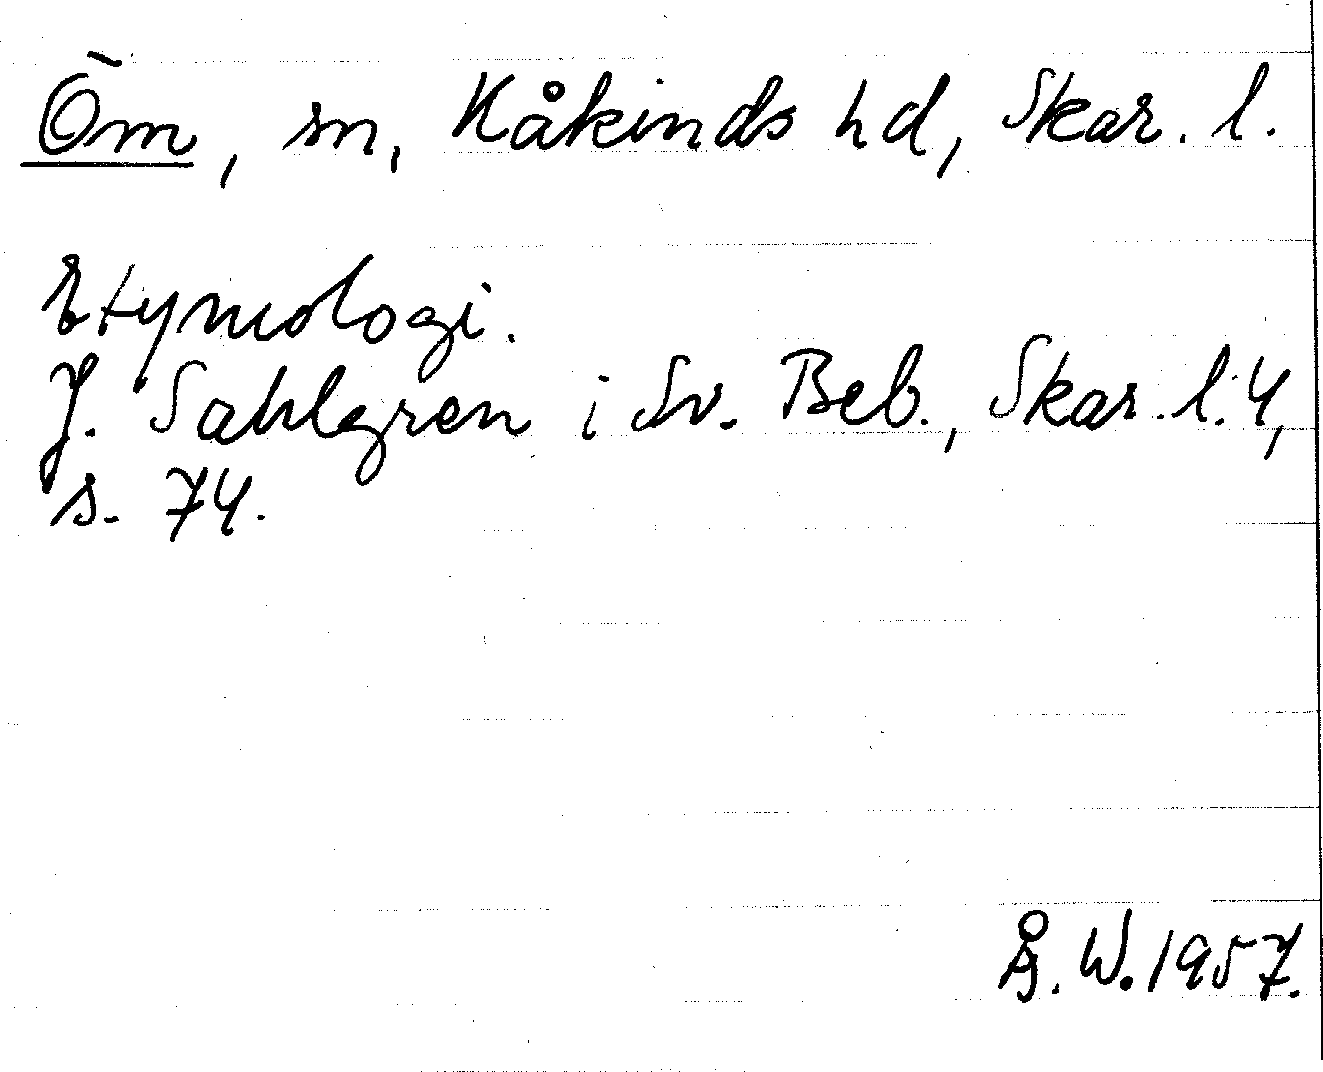 Õm, sn, Kåkinds hd, Skar. l.
Etymologi.
J. Sahlgren i Sv. Beb., Skar. l. 4,
s. 74.
Å. W. 1957.